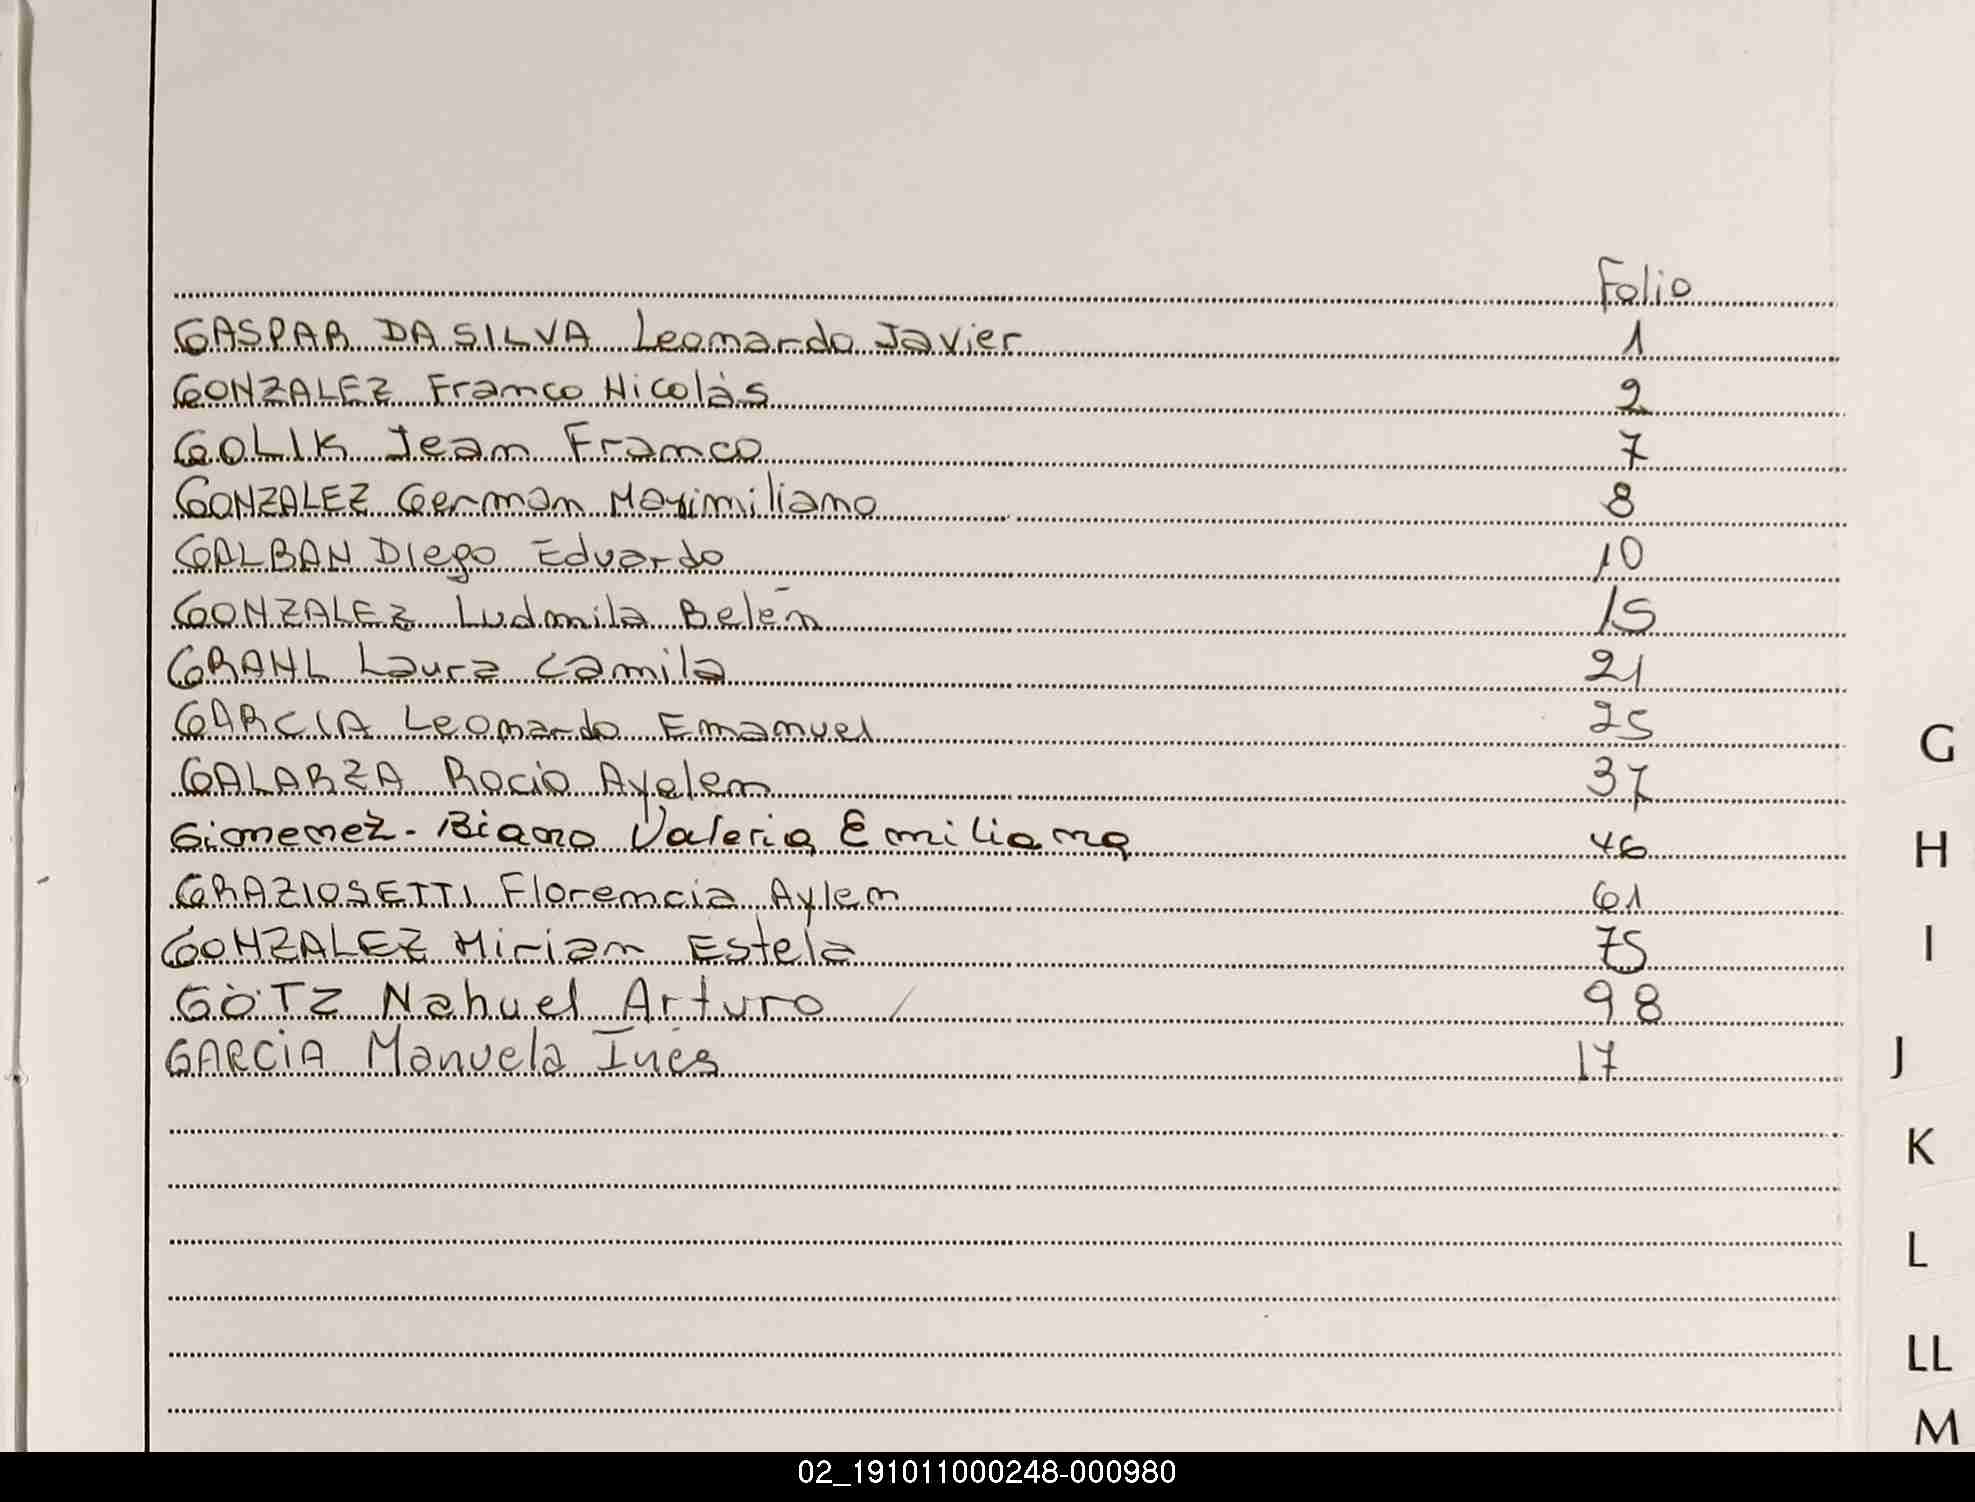 Folio
GASPAR DA SILVA Leonardo Javier 1
GONZALEZ Franco Nicolás 2
GOLIK Jean Franco 7
GONZALEZ German Maximiliano 8
GALBAN Diego Eduardo 10
GONZALEZ Ludmila Belén 15
GRAHL Laura Camila 21
GARCIA Leonardo Emanuel 25
GALARZA Rocio Ayelen 37
Gimenez - Biano Valeria Emiliana 46
GRAZIOSETTI Florencia Aylen 61
GONZALEZ Miriam Estela 75
GÖTZ Nahuel Arturo 98
GARCIA Manuela Inés 17
G
H
I
J
K
L
LL
M
02_191011000248-000980